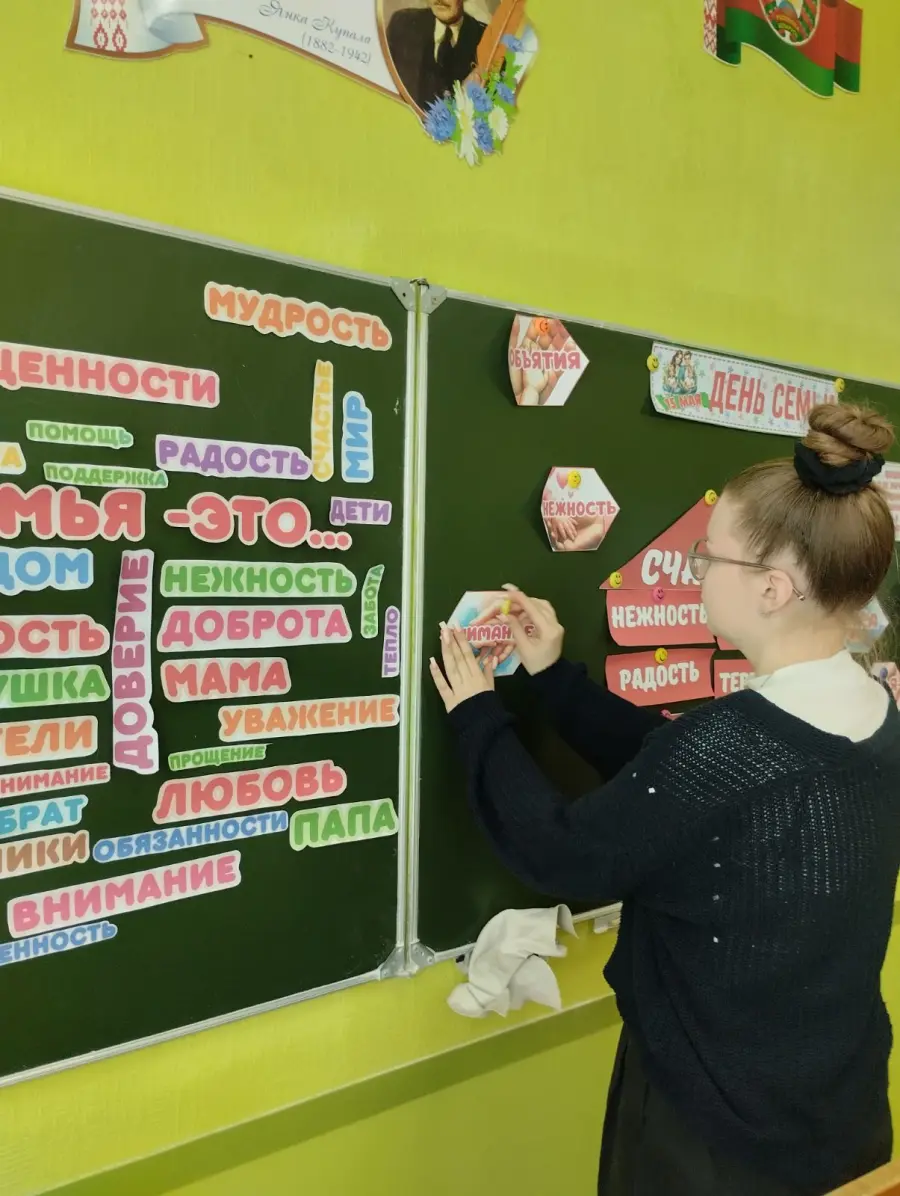 Янка Купала
(1882-1942)
МУДРОСТЬ
ЦЕННОСТИ
СЧАСТЬЕ
МИР
ПОМОЩЬ
РАДОСТЬ
ПОДДЕРЖКА
МЬЯ -ЭТО...
ДЕТИ
ДОМ
ДОВЕРИЕ
НЕЖНОСТЬ
ЗАБОТ
ОСТЬ
ДОБРОТА
ТЕПЛО
УШКА
МАМА
ТЕЛИ
УВАЖЕНИЕ
ПРОЩЕНИЕ
НИМАНИЕ
ЛЮБОВЬ
БРАТ
ОБЯЗАННОСТИ
ПАПА
НИКИ
ВНИМАНИЕ
ЕННОСТЬ
ОБЪЯТИЯ
15 МАЯ ДЕНЬ СЕМЬИ
НЕЖНОСТЬ
ВНИМАНИЕ
СЧА
НЕЖНОСТЬ
РАДОСТЬ
ТЕР